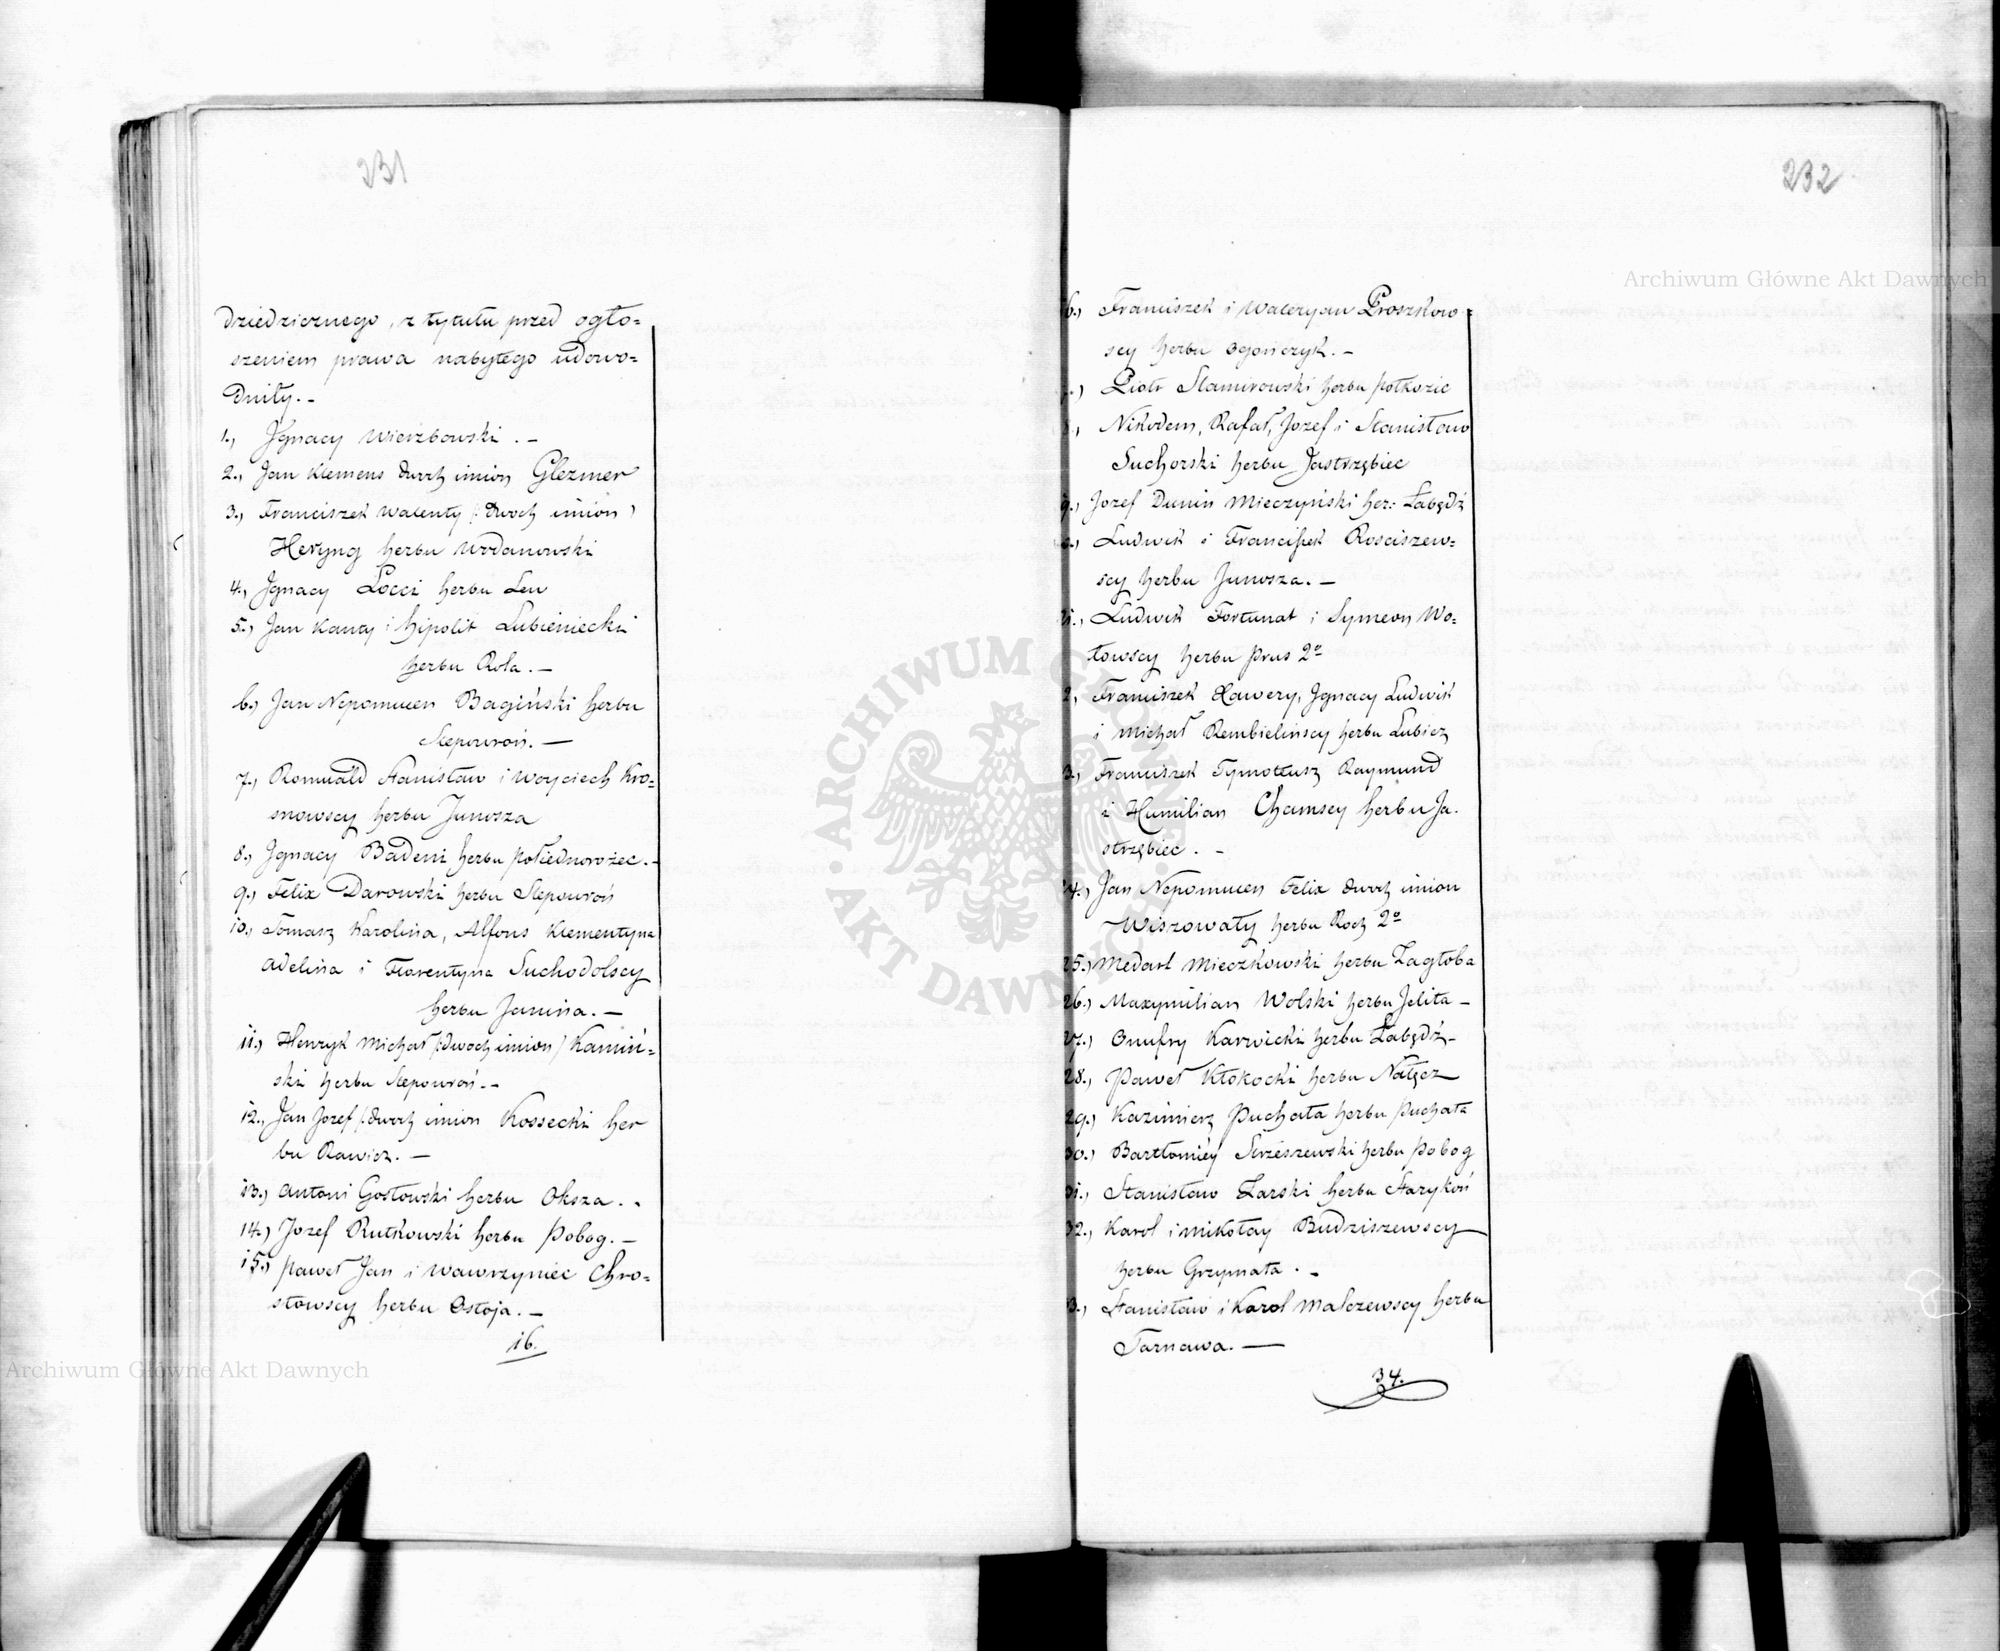 231
dziedzicznego, z tytułu przed ogło=
szeniem prawa nabytego udowo=
dniły.-
1., Jgnacy Wierzbowski.-
2., Jan Klemens dwoch imion Glezmer
3., Franciszek Walenty /: dwoch imion /
Heryng herbu Wodanowski
4., Jgnacy Locci herbu Lew
5., Jan Kanty i Hipolit Lubieniecki
herbu Rola.-
6.) Jan Nepomucen Bagiński herbu
Slepowroń.-
7.) Romuald Stanisław i Woyciech Kro=
snowscy herbu Junosza
8.) Jgnacy Badeni herbu połiednorożec.-
9.) Felix Darowski herbu Slepowroń
10.) Tomasz Karolina, Alfons Klementyna
Adelina i Florentyna Suchodolscy
herbu Janina.-
11.) Henryk Michał /: dwoch imion / Kamiń=
ski herbu Slepowroń.-
12., Jan Jozef /: dwoch imion Kossecki her
bu Rawicz.-
13.) Antoni Gosłowski herbu Oksza.-
14.) Jozef Rutkowski herbu Pobog.-
15.) Paweł Jan i Wawrzyniec Chro=
słowscy herbu Ostoja.-
16.
232
6.) Franciszek i Waleryan Proszkow=
scy herbu Ogończyk.-
.) Piotr Slamirowski herbu połkozic
8., Nikodem, Rafał, Jozef i Stanisław
Suchorski herbu Jastrzębiec
9.) Jozef Dunin Mieczyński her: Łabędź
.) Ludwik i Franciszek Rosciszew=
scy herbu Junosza.-
1., Ludwik Fortunat i Symeon Wo=
łowscy herbu prus 2º
2, Franciszek Xawery, Jgnacy Ludwik
i Michał Rembielinscy herbu Lubicz
3.) Franciszek Tymoteusz Raymund
i Humilian Chamscy herbu Ja.
strzębiec.-
4.) Jan Nepomucen Felix dwoch imion
Wiszowaty herbu Roch 2º
25.) Medart Mieczkowski herbu Zagłoba
26.) Maxymilian Wolski herbu Jelita-
27.) Onufry Karwicki herbu Łabędź-
28., Paweł Kłokocki herbu Nałęcz
29.) Kazimierz Puchała herbu Puchała
30.) Bartłomiéy Strzeszewski herbu Pobog
31.) Stanisław Zarski herbu Starykoń
32., Karol i Mikołay Budziszewscy
herbu Grzymała.-
3., Stanisław i Karol Malczewscy herbu
Tarnawa.-
34.
ARCHIWUM GŁÓWNE AKT DAWNYCH
Archiwum Główne Akt Dawnych
Archiwum Główne Akt Dawnych